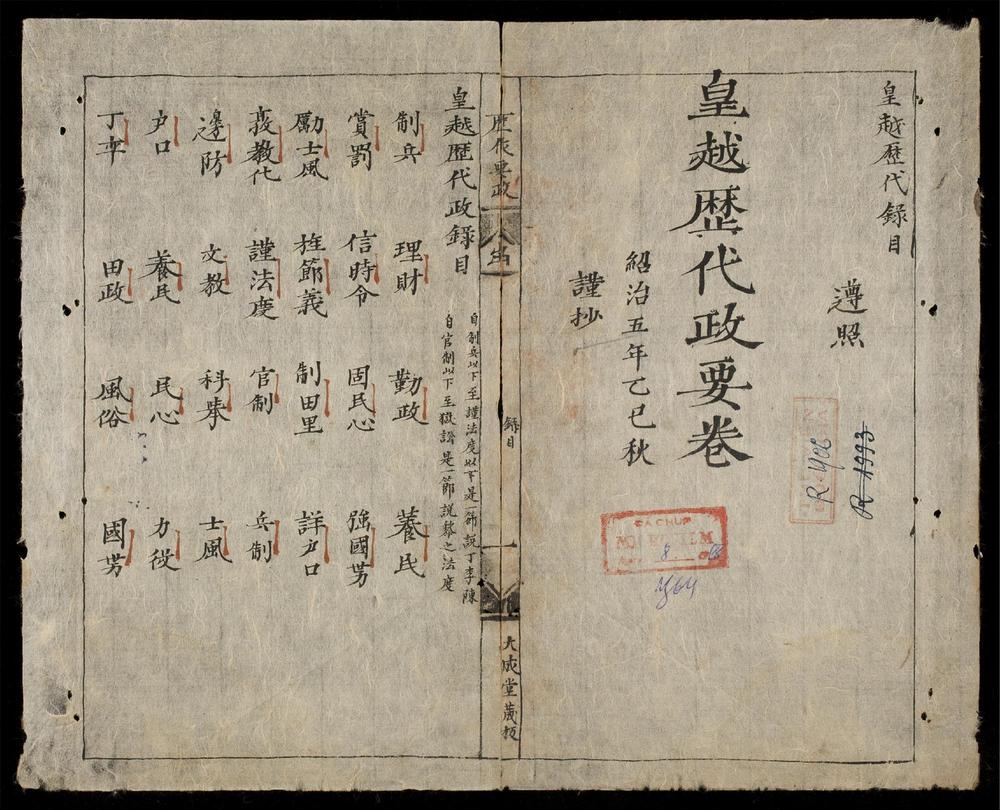 皇越歷代錄目
遵照
皇越歷代政要卷
紹治五年乙巳秋
謹抄
R.1906
R 1993
ĐÃ CHỤP
錄目
大成堂蔵板
皇越歷代政錄目
自制兵以下至謹法度以下是一節說丁李陳
自官制以下至獄訟是一節說黎之法度
制兵 理財 勤政 養民
賞罰 信時令 固民心 強國势
勵士風 旌節義 制田里 詳户口
教化 謹法度 官制 兵制
邊防 文教 科舉 士風
户口 養民 民心 力役
丁率 田政 風俗 國势